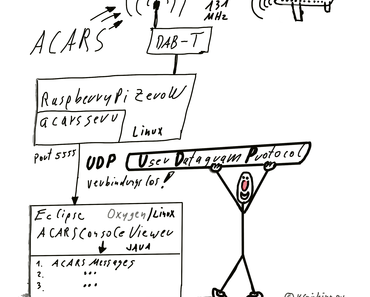 131
MHz
ACARS
DAB-T
Raspberry Pi Zero W
acarsserv
Linux
Port 5555
UDP
User Datagram Protocol
verbindungslos!
Eclipse Oxygen/Linux
ACARS Console Viewer
JAVA
1. ACARS Messages
2. ...
3. ...